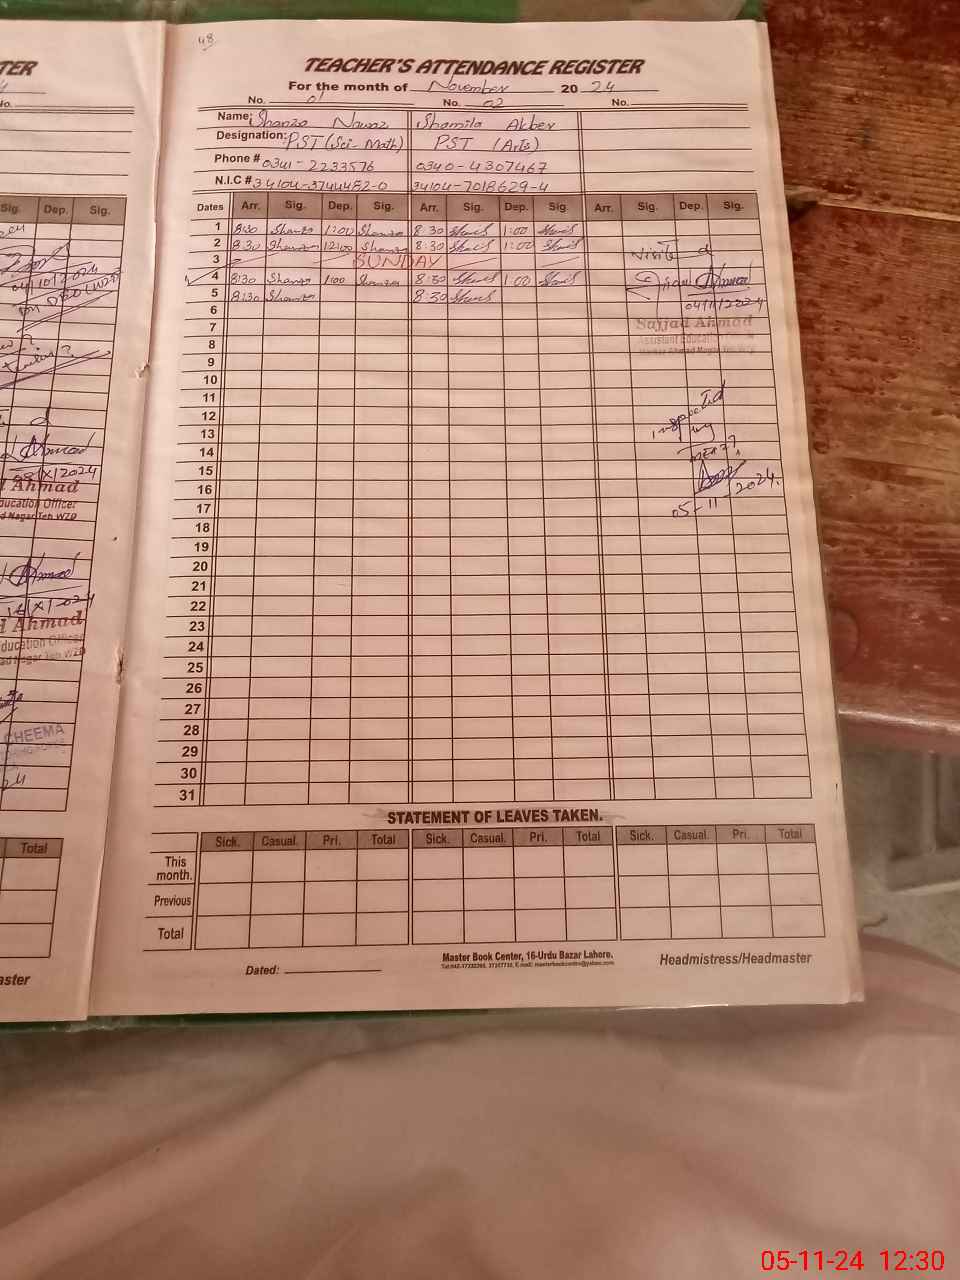 48
TEACHER'S ATTENDANCE REGISTER
For the month of November 20 24
No. 01 No. 02 No.
Name: Shanza Nawaz Shamila Akber
Designation: PST (Sci-Math) PST (Arts)
Phone # 0341-2233576 0340-4307467
N.I.C # 34104-3744452-0 34104-7018629-4
Dates Arr. Sig. Dep. Sig. Arr. Sig. Dep. Sig. Arr. Sig. Dep. Sig.
1 8:30 Shanza 1:00 Shanza 8:30 1:00
2 8:30 Shanza 12:00 Shanza 8:30 1:00
3 SUNDAY
4 8:30 Shanza 1:00 Shanza 8:30 1:00
5 8:30 Shanza 8:30
6
7
8
9
10
11
12
13
14
15
16
17
18
19
20
21
22
23
24
25
26
27
28
29
30
31
Visited
Ahmad
04/11/2024
Sajjad Ahmad
Assistant Education
Inspected
by
05-11-2024.
STATEMENT OF LEAVES TAKEN.
Sick. Casual. Pri. Total Sick. Casual. Pri. Total Sick. Casual. Pri. Total
This month.
Previous
Total
Dated:
Master Book Center, 16-Urdu Bazar Lahore.
Headmistress/Headmaster
TER
No.
Sig. Dep. Sig.
04/10/2024
Ahmad
08/X/2024
d Ahmad
ducation Officer
d Nagar Teh WZD
Ahmad
16/X/2024
d Ahmad
ducation Officer
ad Nagar Teh WZD
CHEEMA
Total
aster
05-11-24 12:30